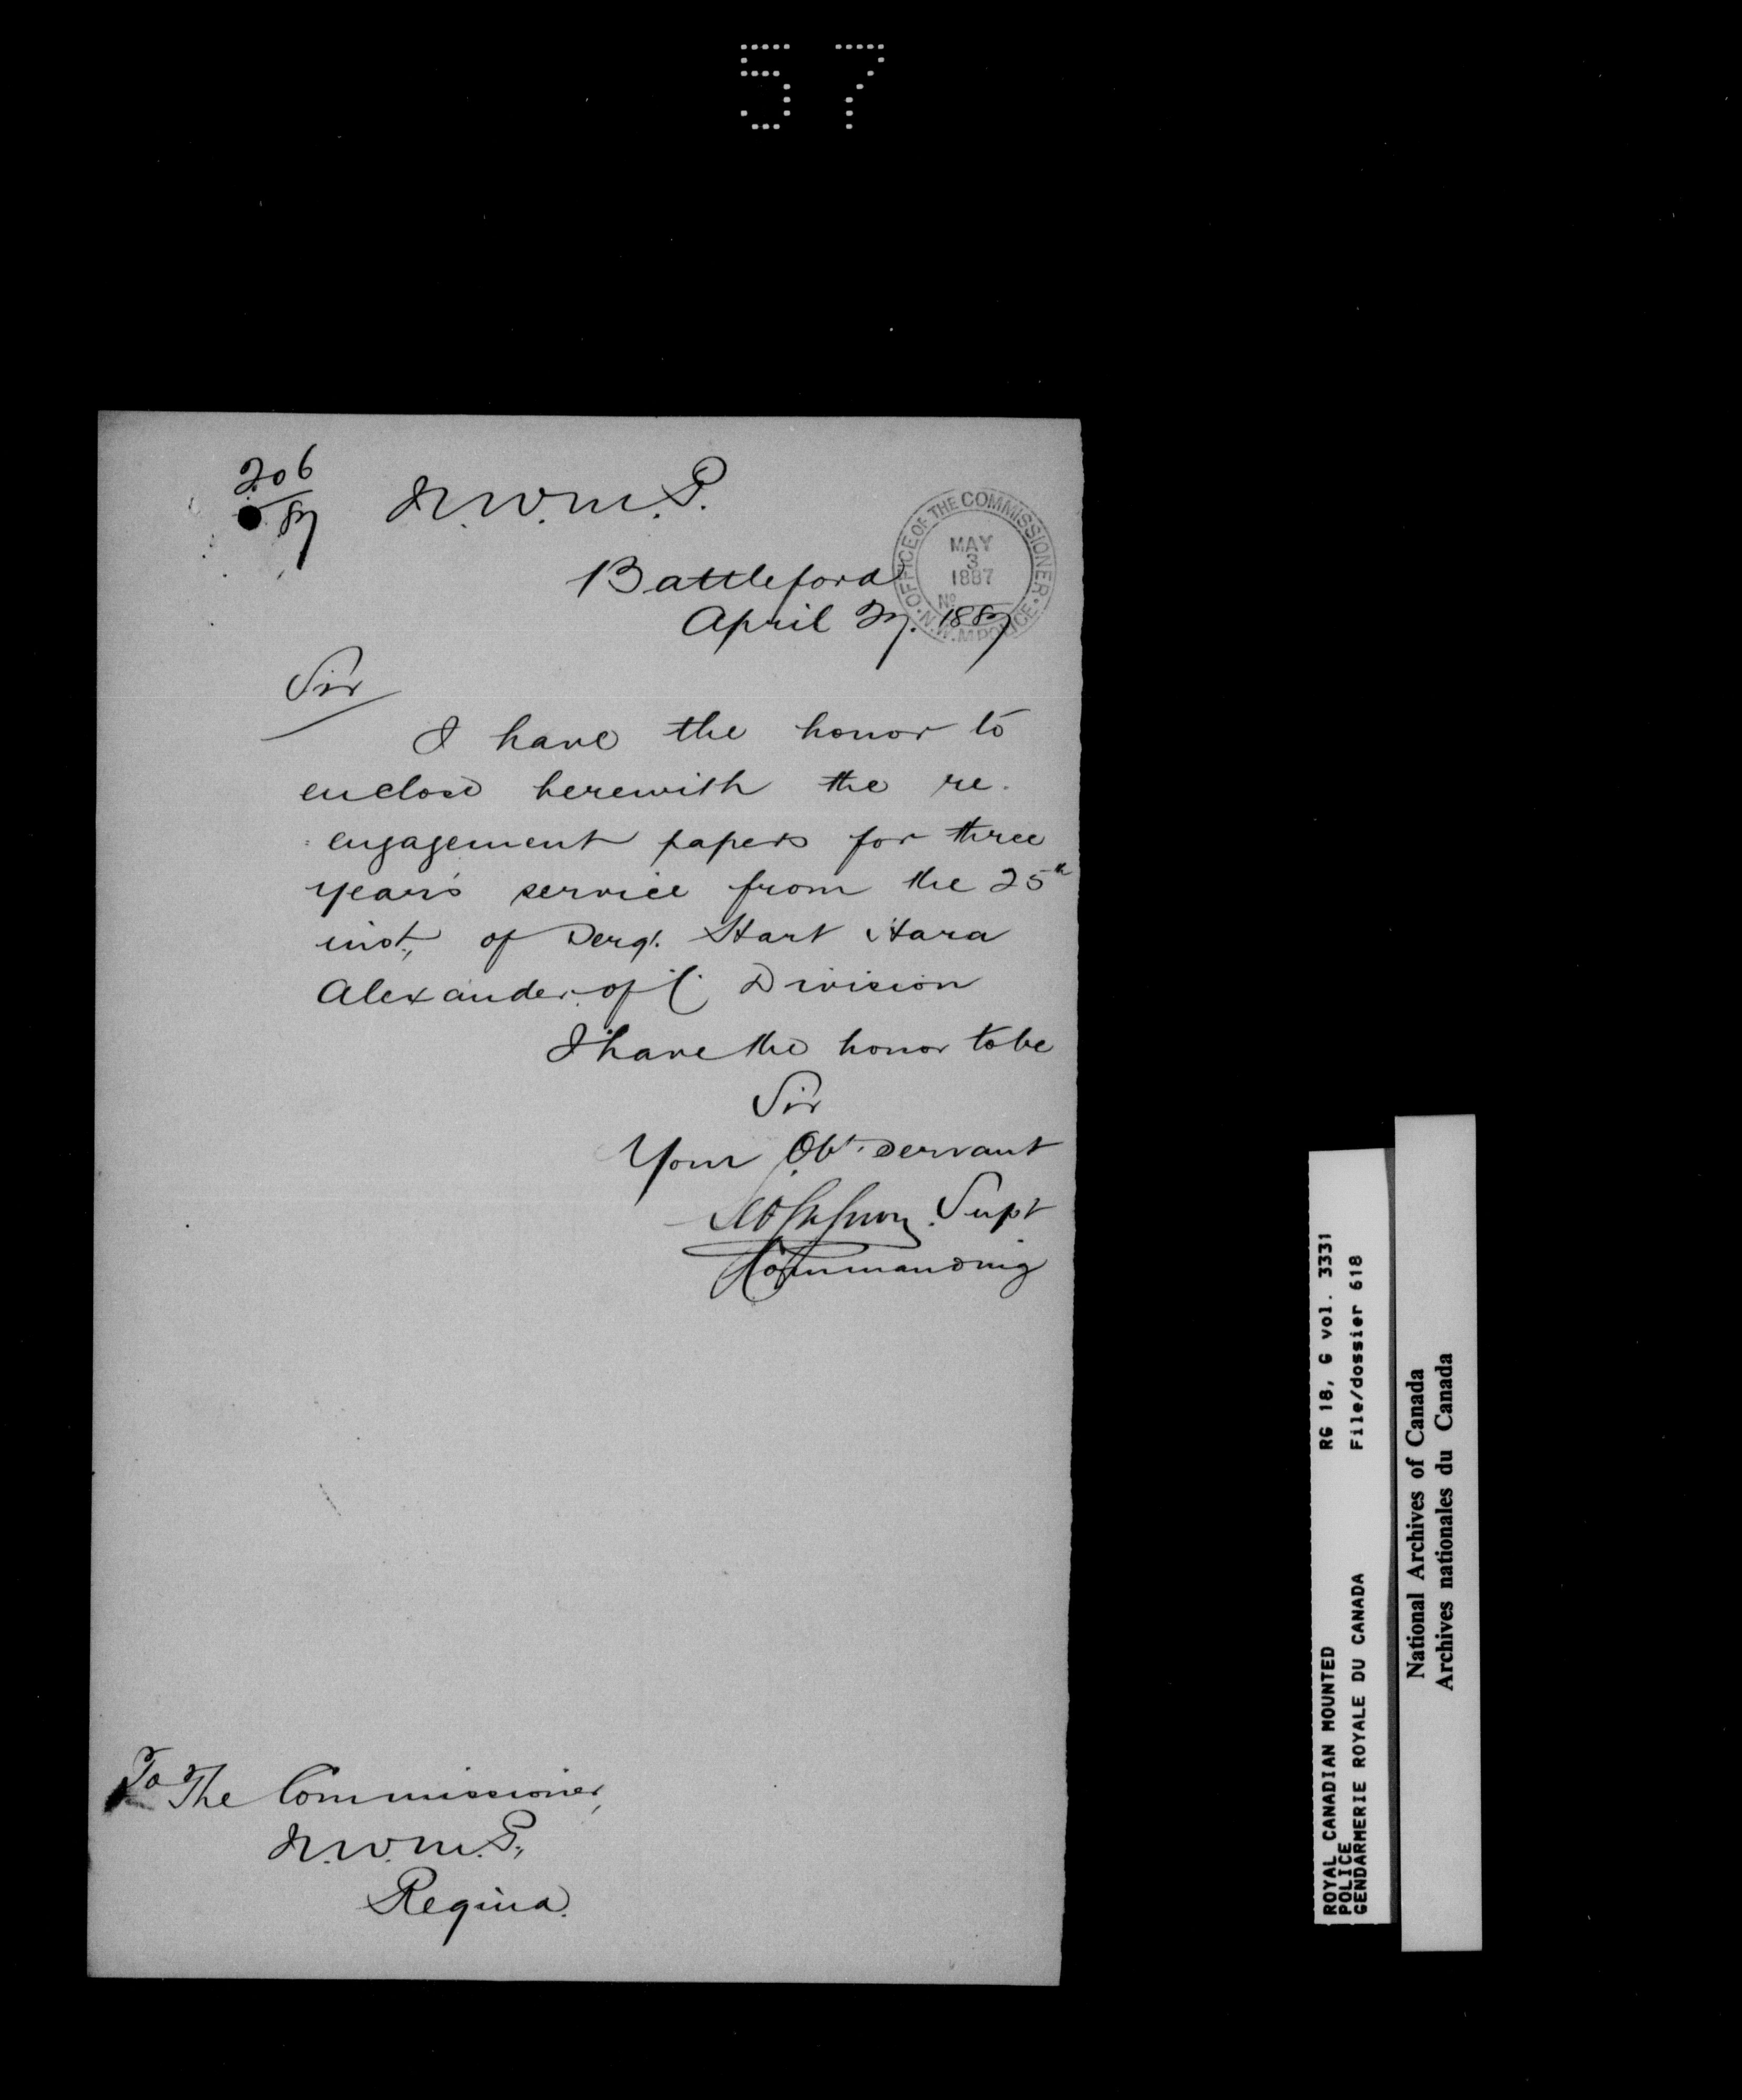 57
206
87
N.W.M.P.
OFFICE OF THE COMMISSIONER
MAY
3
1887
No
N.W.M POLICE
Battleford
April 27. 1887
Sir
I have the honor to
enclose herewith the re-
engagement papers for three
years service from the 25th
inst., of Sergt. Hart
Alexander of C. Division
I have the honor to be
Sir
Your Obt. Servant
Supt
Commanding
To The Commissioner,
N.W.M.P.,
Regina.
ROYAL CANADIAN MOUNTED
POLICE
GENDARMERIE ROYALE DU CANADA
RG 18, G vol. 3331
File/dossier 618
National Archives of Canada
Archives nationales du Canada